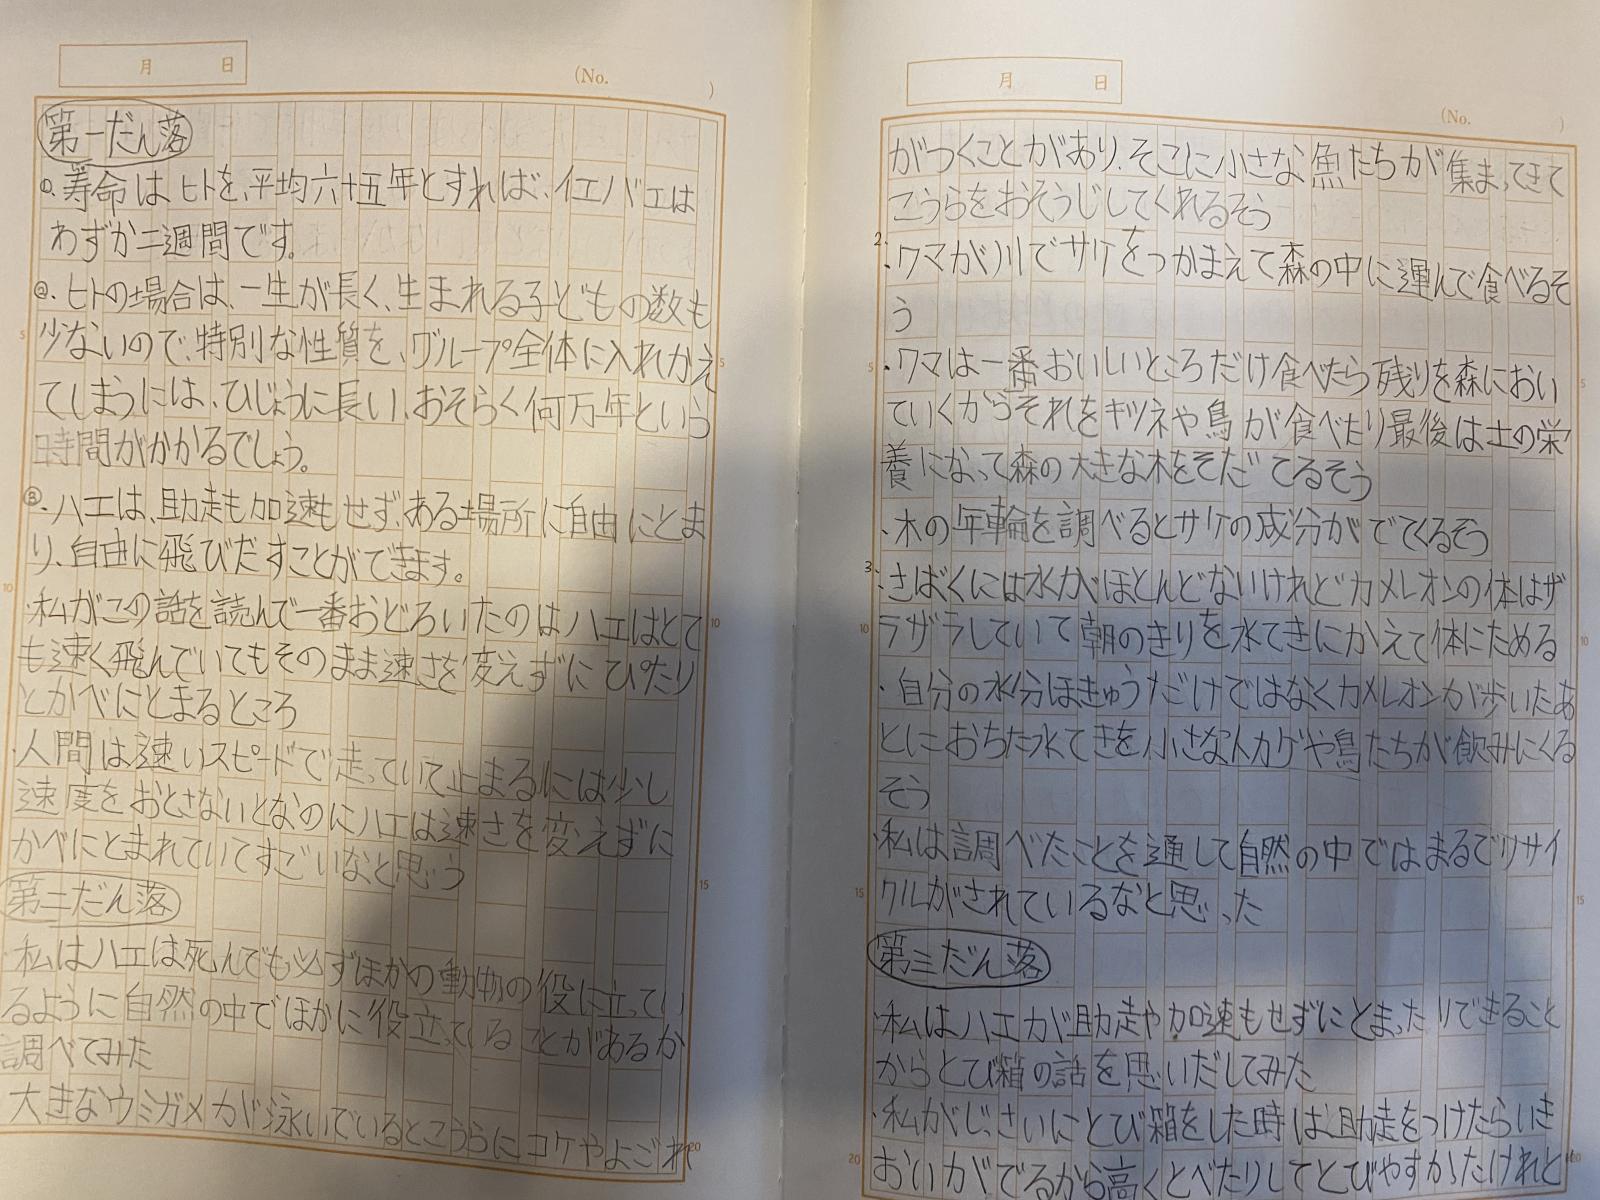 月 日
(No. )
第一だん落
①.寿命はヒトを、平均六十五年とすれば、イエバエは
わずか二週間です。
②.ヒトの場合は、一生が長く、生まれる子どもの数も
少ないので、特別な性質を、グループ全体に入れかえ
てしまうには、ひじょうに長い、おそらく何万年という
時間がかかるでしょう。
③.ハエは、助走も加速もせず、ある場所に自由にとま
り、自由に飛びだすことができます。
・私がこの話を読んで一番おどろいたのはハエはとて
も速く飛んでいてもそのまま速さを変えずにぴたり
とかべにとまるところ
・人間は速いスピードで走っていて止まるには少し
速度をおとさないとなのにハエは速さを変えずに
かべにとまれていてすごいなと思う
第二だん落
・私はハエは死んでも必ずほかの動物の役に立ってい
るように自然の中でほかに役立っていることがあるか
調べてみた
大きなウミガメが泳いでいるとこうらにコケやよごれ
5
10
15
20
月 日
(No. )
がつくことがあり、そこに小さな魚たちが集まってきて
こうらをおそうじしてくれるそう
2.
・クマが川でサケをつかまえて森の中に運んで食べるそ
う
・クマは一番おいしいところだけ食べたら残りを森におい
ていくからそれをキツネや鳥が食べたり最後は土の栄
養になって森の大きな木をそだてるそう
・木の年輪を調べるとサケの成分がでてくるそう
3.
・さばくには水がほとんどないけれどカメレオンの体はザ
ラザラしていて朝のきりを水てきにかえて体にためる
・自分の水分ほきゅうだけではなくカメレオンが歩いたあ
とにおちた水てきを小さなトカゲや鳥たちが飲みにくる
そう
・私は調べたことを通して自然の中ではまるでリサイ
クルがされているなと思った
第三だん落
・私はハエが助走や加速もせずにとまったりできること
からとび箱の話を思いだしてみた
・私がじっさいにとび箱をした時は、助走をつけたらいき
おいがでるから高くとべたりしてとびやすかったけれど
5
10
15
20